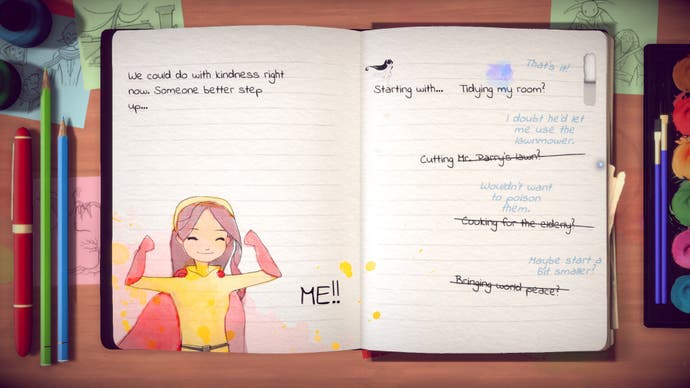 We could do with kindness right
now. Someone better step
up...
ME!!
That's it!
Starting with... Tidying my room?
I doubt he'd let
me use the
lawnmower.
Cutting Mr. Parry's lawn?
Wouldn't want
to poison
them.
Cooking for the elderly?
Maybe start a
bit smaller?
Bringing world peace?